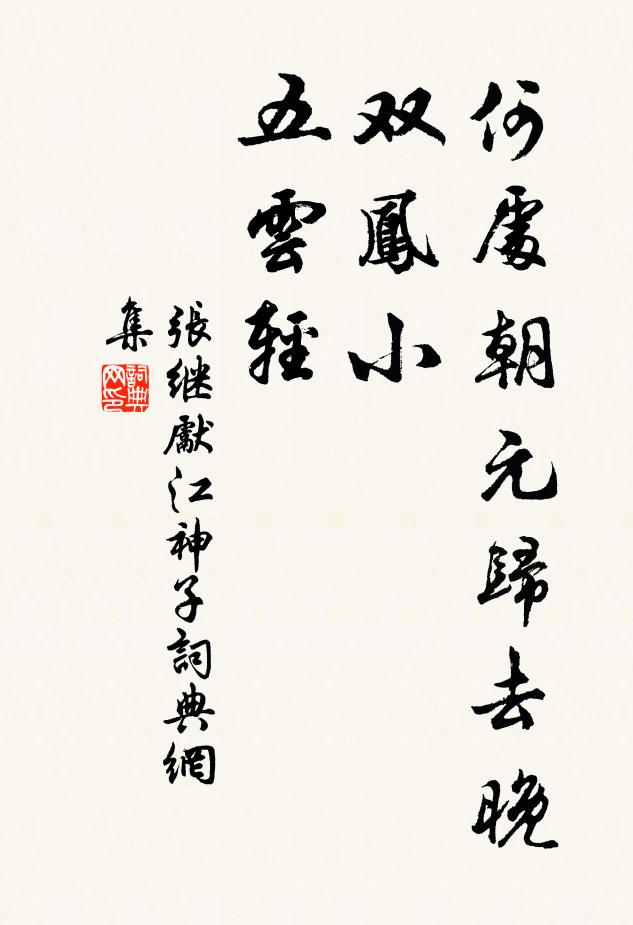 何處朝元歸去晚
双鳳小
五雲輕
張继獻江神子詞典網
集
詞典
网印